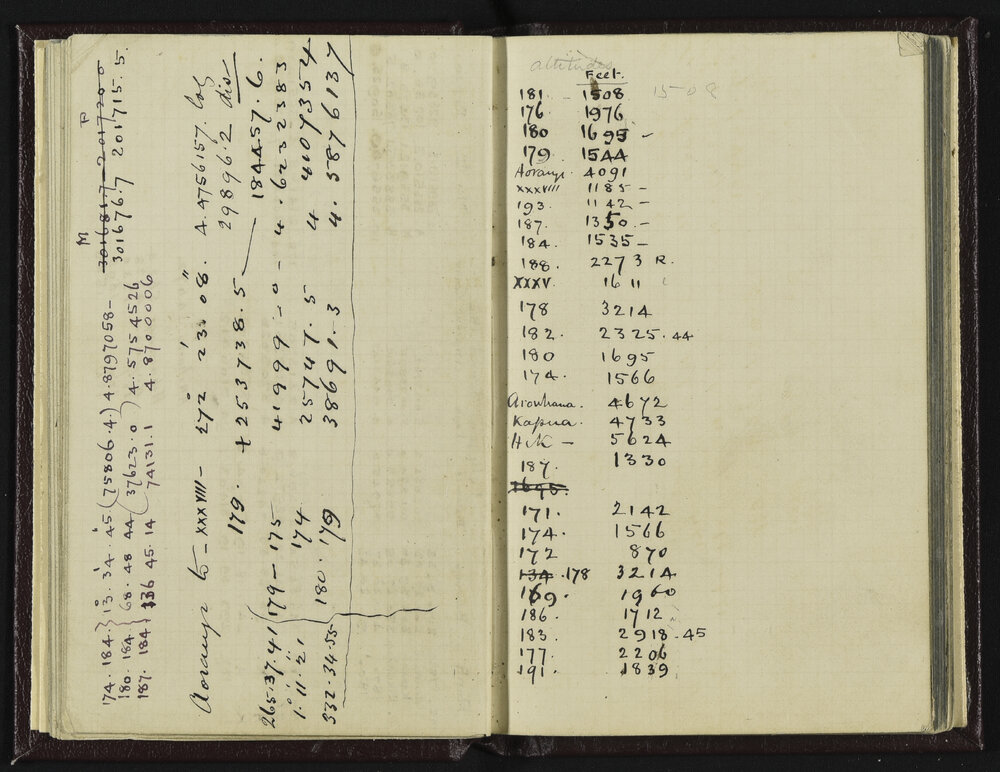 M P
301681.7 201720.0
301676.7 201715.5.
74. 184. } 13. 34. 45 ( 75806.4 ) 4.8797058-
180. 184 } 68. 48 44 ( 37623.0 ) 4.5754526
187. 184 } 336 45. 14 74131.1 4.8700006
Aorangi to - XXXVIII - 272 23 08. 4.4756157. log
29896.2 dis
179. + 253738.5 — 184457.6.
265.37.41 ( 179 - 175 41999 - 0 - 4.6232383
1. 11. 21 174 25747.5 4 4107354
332.34.55 180. 179 38691.3 4.5876137
altitudes
Feet.
181 - 1508 1508
176. 1976
180 1695 -
179. 1544
Aorangi. 4091
XXXVIII 1185 -
193. 1142 -
187. 1350. -
184. 1535 -
188. 2273 R.
XXXV. 1611
178 3214
182. 2325.44
180 1695
174. 1566
Arowhana. 4672
Kapua. 4733
Hik - 5624
187. 1330
1695.
171. 2142
174. 1566
172 870
134 .178 3214
169. 1960
186. 1712.
183. 2918.45
177. 2206
191. 1839